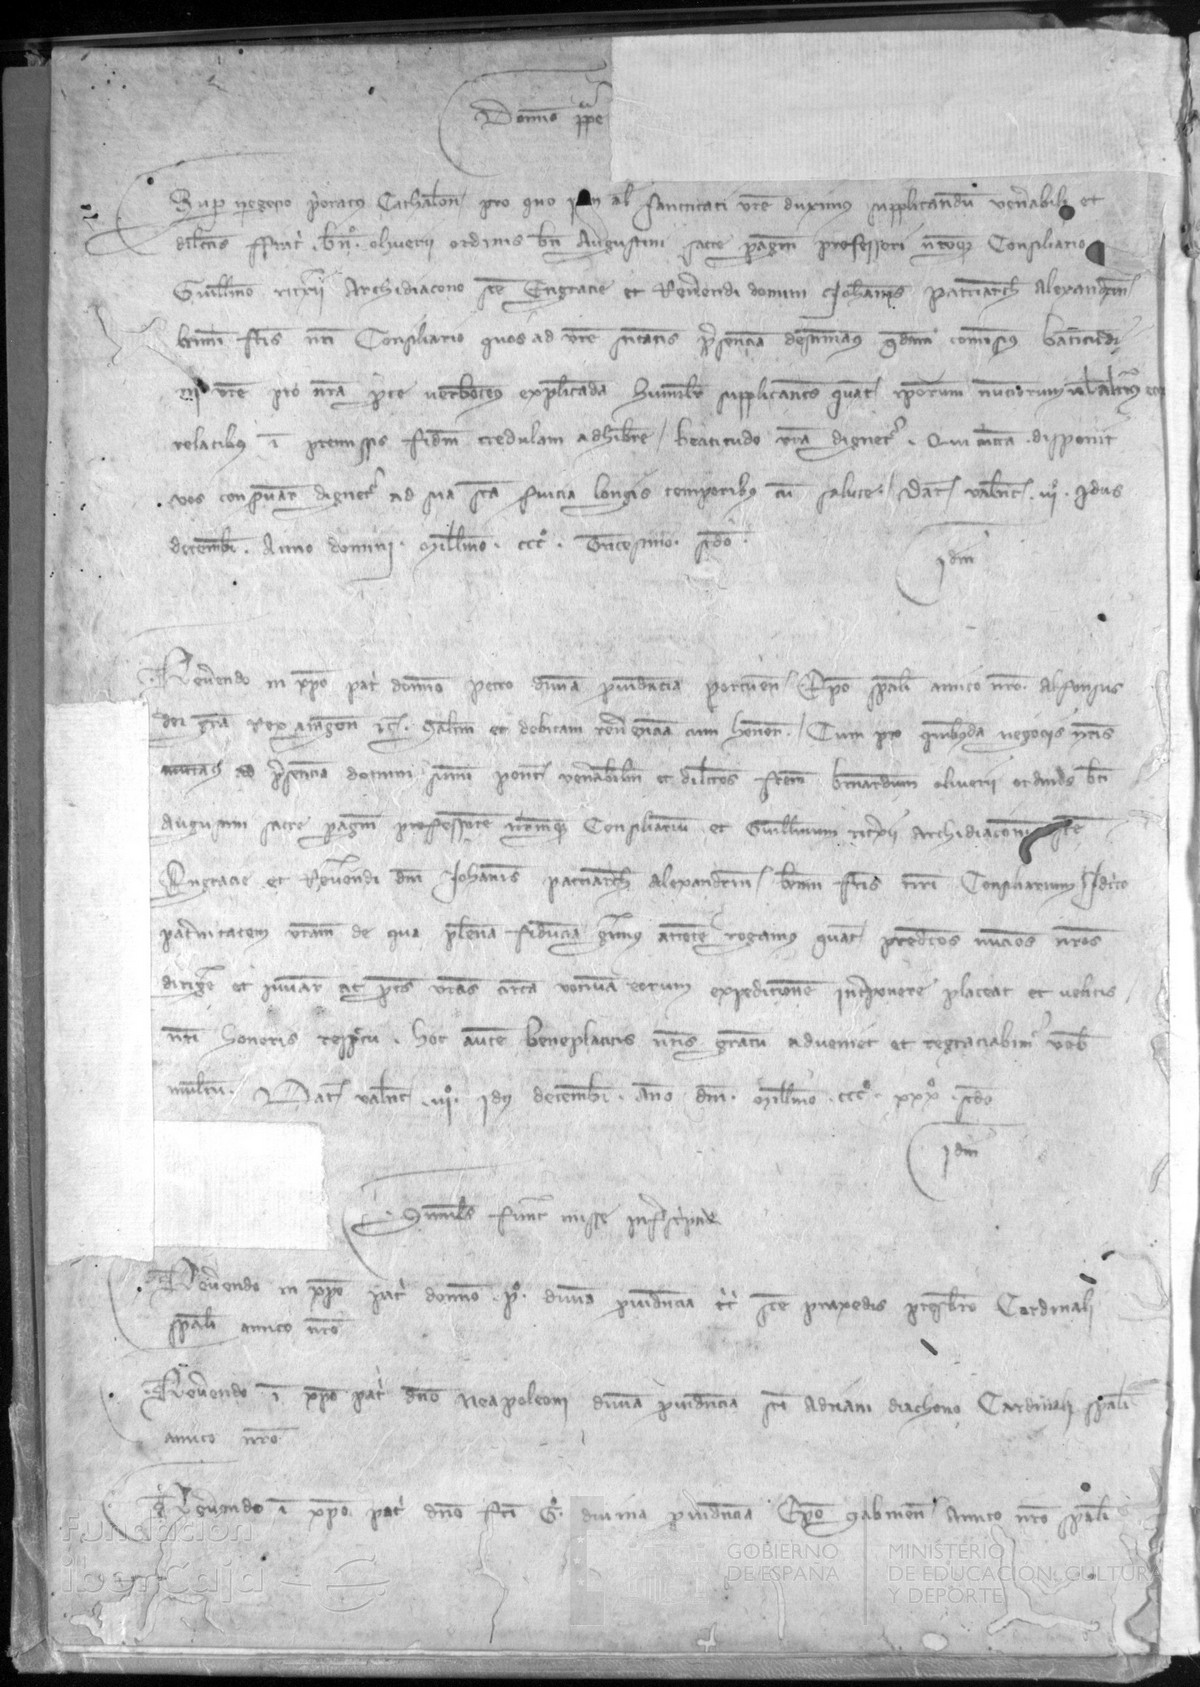 Domino ppe
Sup negocio poratus Cathalon pro quo iam al Sanctitati vre duximus supplicandum venerabili et
dilcus fratri bn̄. oliverii ordinis bti Augustini sacre pagine professori nroque Consiliario
Guillmo ricxii Archidiacono sce Engracie et Reverendi domini Johannis patriarch Alexandrin
krmi fris nri Consiliario quos ad vre sctitatis presencia destinamus
vre pro nra pte verbotenus explicanda humilr supplicantes quat ipsorum nunciorum
relatibus in premissis fidem credulam adhibere beatitudo vra dignetur. Qui cuncta disponit
vos conservar dignetur ad sua sca svicia longis temporibus cu salute. Dat valnc iiiº. Idus
decembr. Anno domini millmo. cccº. Tricesimo. scdo.
Idm
Reverendo in xpo patri domino petro divina pvidencia portuen Epo spali amico nro. Alfonsus
dei gra Rex aragon ec. Salutem et debitam reverencia cum honore. Cum pro quibusdam negociis nris
ad presencia domini summi pont venerabilem et dilectos frem bernardum oliverii ordinis bti
augustini sacre pagine professore nrumque Consiliarium et Guillmum ricxii archidiaconum sce
Engracie et Reverendi dni Johannis patriarch alexandrin krmi fris nri Consiliarium Idcirco
paternitatem vram de qua plena fiducia gerimus attente rogamus quat predcos nuncios nros
dirigere et iuvar ac ptes vras circa votiva eorum expeditione interponere placeat et velitis
nri honoris respectu. hoc aute beneplacitis nris gratu adveniet et regraciabimur vob
multu. Dat valnc iiiº. Idus decembr. Ano dni. millmo. cccº. xxxº. scdo
Idm
Similes funt misse infrascriptis
Reverendo in xpo patri domino. p. divina pvidencia tt sce praxedis presbro Cardinali
spali amico nro
Reverendo in xpo patri dno Neapoleoni divina pvidencia sci Adriani diachono Cardinali spali
amico nro
Reverendo in xpo patri dno fri G. divina pvidencia Epo Sabinen amico nro spali
Fundación
iberCaja
GOBIERNO
DE ESPAÑA
MINISTERIO
DE EDUCACIÓN, CULTURA
Y DEPORTE